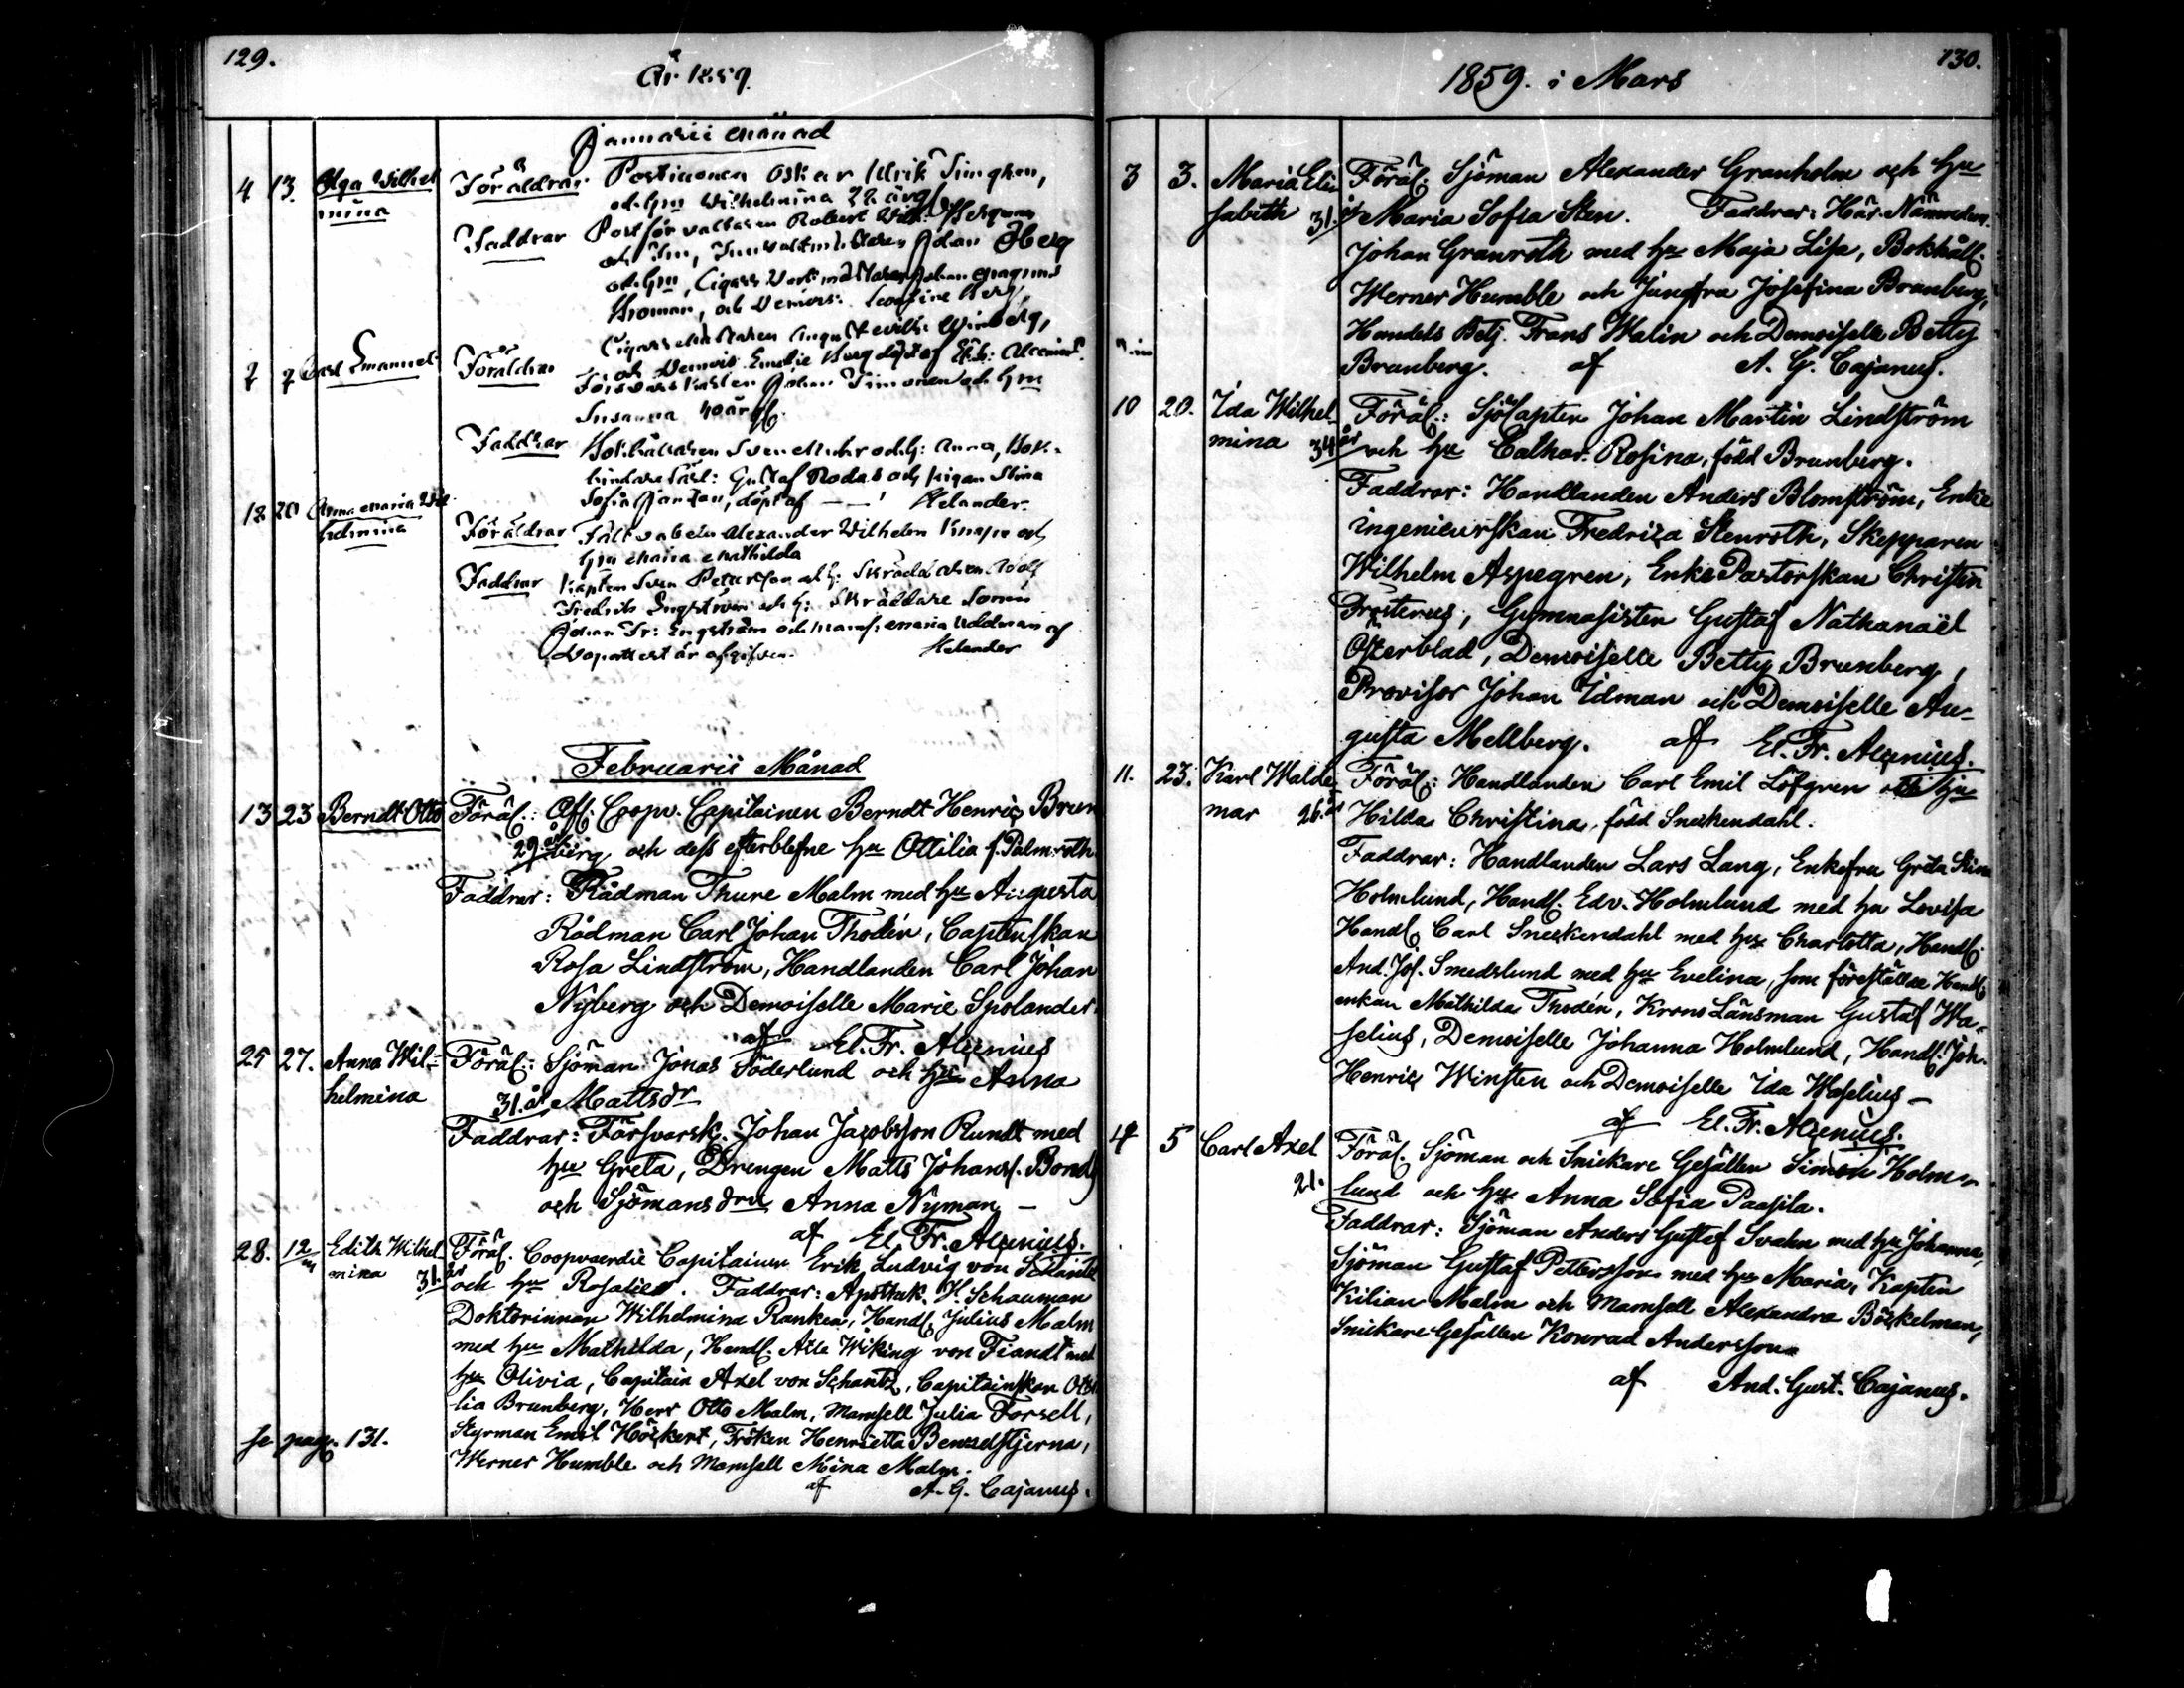 129.
År 1859.
Januarii Månad
4 13. Olga Wilhel
mina
Föräldrar Postiljonen Oskar Ulrik
och hu Wilhelmina 22 årg
Faddrar Postförvaltaren Robert Wilh:
och Hm,
och hm, Cigarr Verkmästaren Johan Magnus
och Demois:
Cigarrmästaren August Wilh: Winberg,
och Demois. Emelie Berg döpt af El. Fr: Alcenius.
7 7 Carl Emanuel
Föräldrar
Försvarskarlen Johan Simonen och hm
Susanna 40 årg.
Faddrar Bokhållaren Sven och h: Anna, Bok-
bindare Gustaf Rodas och pigan Stina
Sofia döpt af Helander.
18 20 Anna Maria Wil
helmina
Föräldrar Fältväbeln Alexander Wilhelm Knape och
hm Maria Mathilda
Faddrar Kapten Sven Petersson och h: Skräddaren Adolf
Fredrik Engström och h: Skräddare Sonen
Johan Fr: Engström och Mamsl. Maria Uddman af
Helander
Februarii Månad
13 23 Berndt Otto Föräl.: Afl. Coopv. Capitainen Berndt Henric Brun
29 år berg och dess efterblefne hu Ottilia f. Palmroth
Faddrar: Rådman Thure Malm med hu Augusta
Rådman Carl Johan Thodén, Captenskan
Rosa Lindström, Handlanden Carl Johan
Nyberg och Demoiselle Marie Spolander.
af El. Fr. Alcenius
25 27. Anna Wil-
helmina
Föräl.: Sjöman Jonas Söderlund och hu Anna
31. år Mattsdr
Faddrar: Försvarsk. Johan Jacobsson Rundt med
hu Greta, Drengen Matts Johanss. Bond
och Sjömansdrn Anna Nyman –
af El. Fr. Alcenius.
28. 12/m Edith Wilhel
mina 31. år
Föräl. Coopvaerdie Capitainen Erik Ludvig von Schantz
och hu Rosalie. Faddrar: Apothek. H. Schauman
Doktorinnan Wilhelmina Ranken, Handl. Julius Malm
med hu Mathilda, Handl. Atle Wiking von Fiandt med
hu Olivia, Capitain Axel von Schantz, Capitainskan Otti
lia Brunberg, Herr Otto Malm, Mamsell Julia Forsell,
Styrman Emil Höckert, Fröken Henrietta Benzelstjerna,
Werner Humble och Mamsell Mina Malm.
af A. G. Cajanus.
se pag. 131.
130.
1859. i Mars
3 3. Maria Eli
sabeth 31. år
Föräl. Sjöman Alexander Granholm och hu
Maria Sofia Sten. Faddrar: Här. Nämndem.
Johan Granroth med hu Maja Lisa, Bokhåll.
Werner Humble och Jungfru Josefina Brunberg,
Handels Betj. Frans Walin och Demoiselle Betty
Brunberg. af A. G. Cajanus.
10 20. Ida Wilhel
mina 34 år
Föräl.: Sjö Capten Johan Martin Lindström
och hu Cathar. Rosina, född Brunberg.
Faddrar: Handlanden Anders Blomström, Enke
ingenieurskan Fredrica Stenroth, Skepparen
Wilhelm Aspegren, Enke Pastorskan Christin
Frosterus, Gymnasisten Gustaf Nathanaël
Österblad, Demoiselle Betty Brunberg,
Provisor Johan Idman och Demoiselle Au-
gusta Mellberg. af El. Fr. Alcenius.
11. 23. Karl Walde
mar 26. år
Föräl.: Handlanden Carl Emil Löfgren och hu
Hilda Christina, född Sneckendahl.
Faddrar: Handlanden Lars Lang, Enkefru Greta Stina
Holmlund, Handl. Edv. Holmlund med hu Lovisa
Handl. Carl Sneckendahl med hu Charlotta, Handl.
And. Jos. Smedslund med hu Evelina, som föreställde Handl.
enkan Mathilda Thodén, Krono Länsman Gustaf Wa-
selius, Demoiselle Johanna Holmlund, Handl. Joh.
Henric Winsten och Demoiselle Ida Waselius –
af El. Fr. Alcenius.
4 5 Carl Axel
21.
Föräl. Sjöman och Snickare Gesällen Simon Holm-
lund och hu Anna Sofia Paasila.
Faddrar: Sjöman Anders Gustaf Svahn med hu Johanna,
Sjöman Gustaf Pettersson med hu Maria, Kapten
Kilian Malm och Mamsell Alexandra Böckelman,
Snickare Gesällen Konrad Andersson.
af And. Gust. Cajanus.